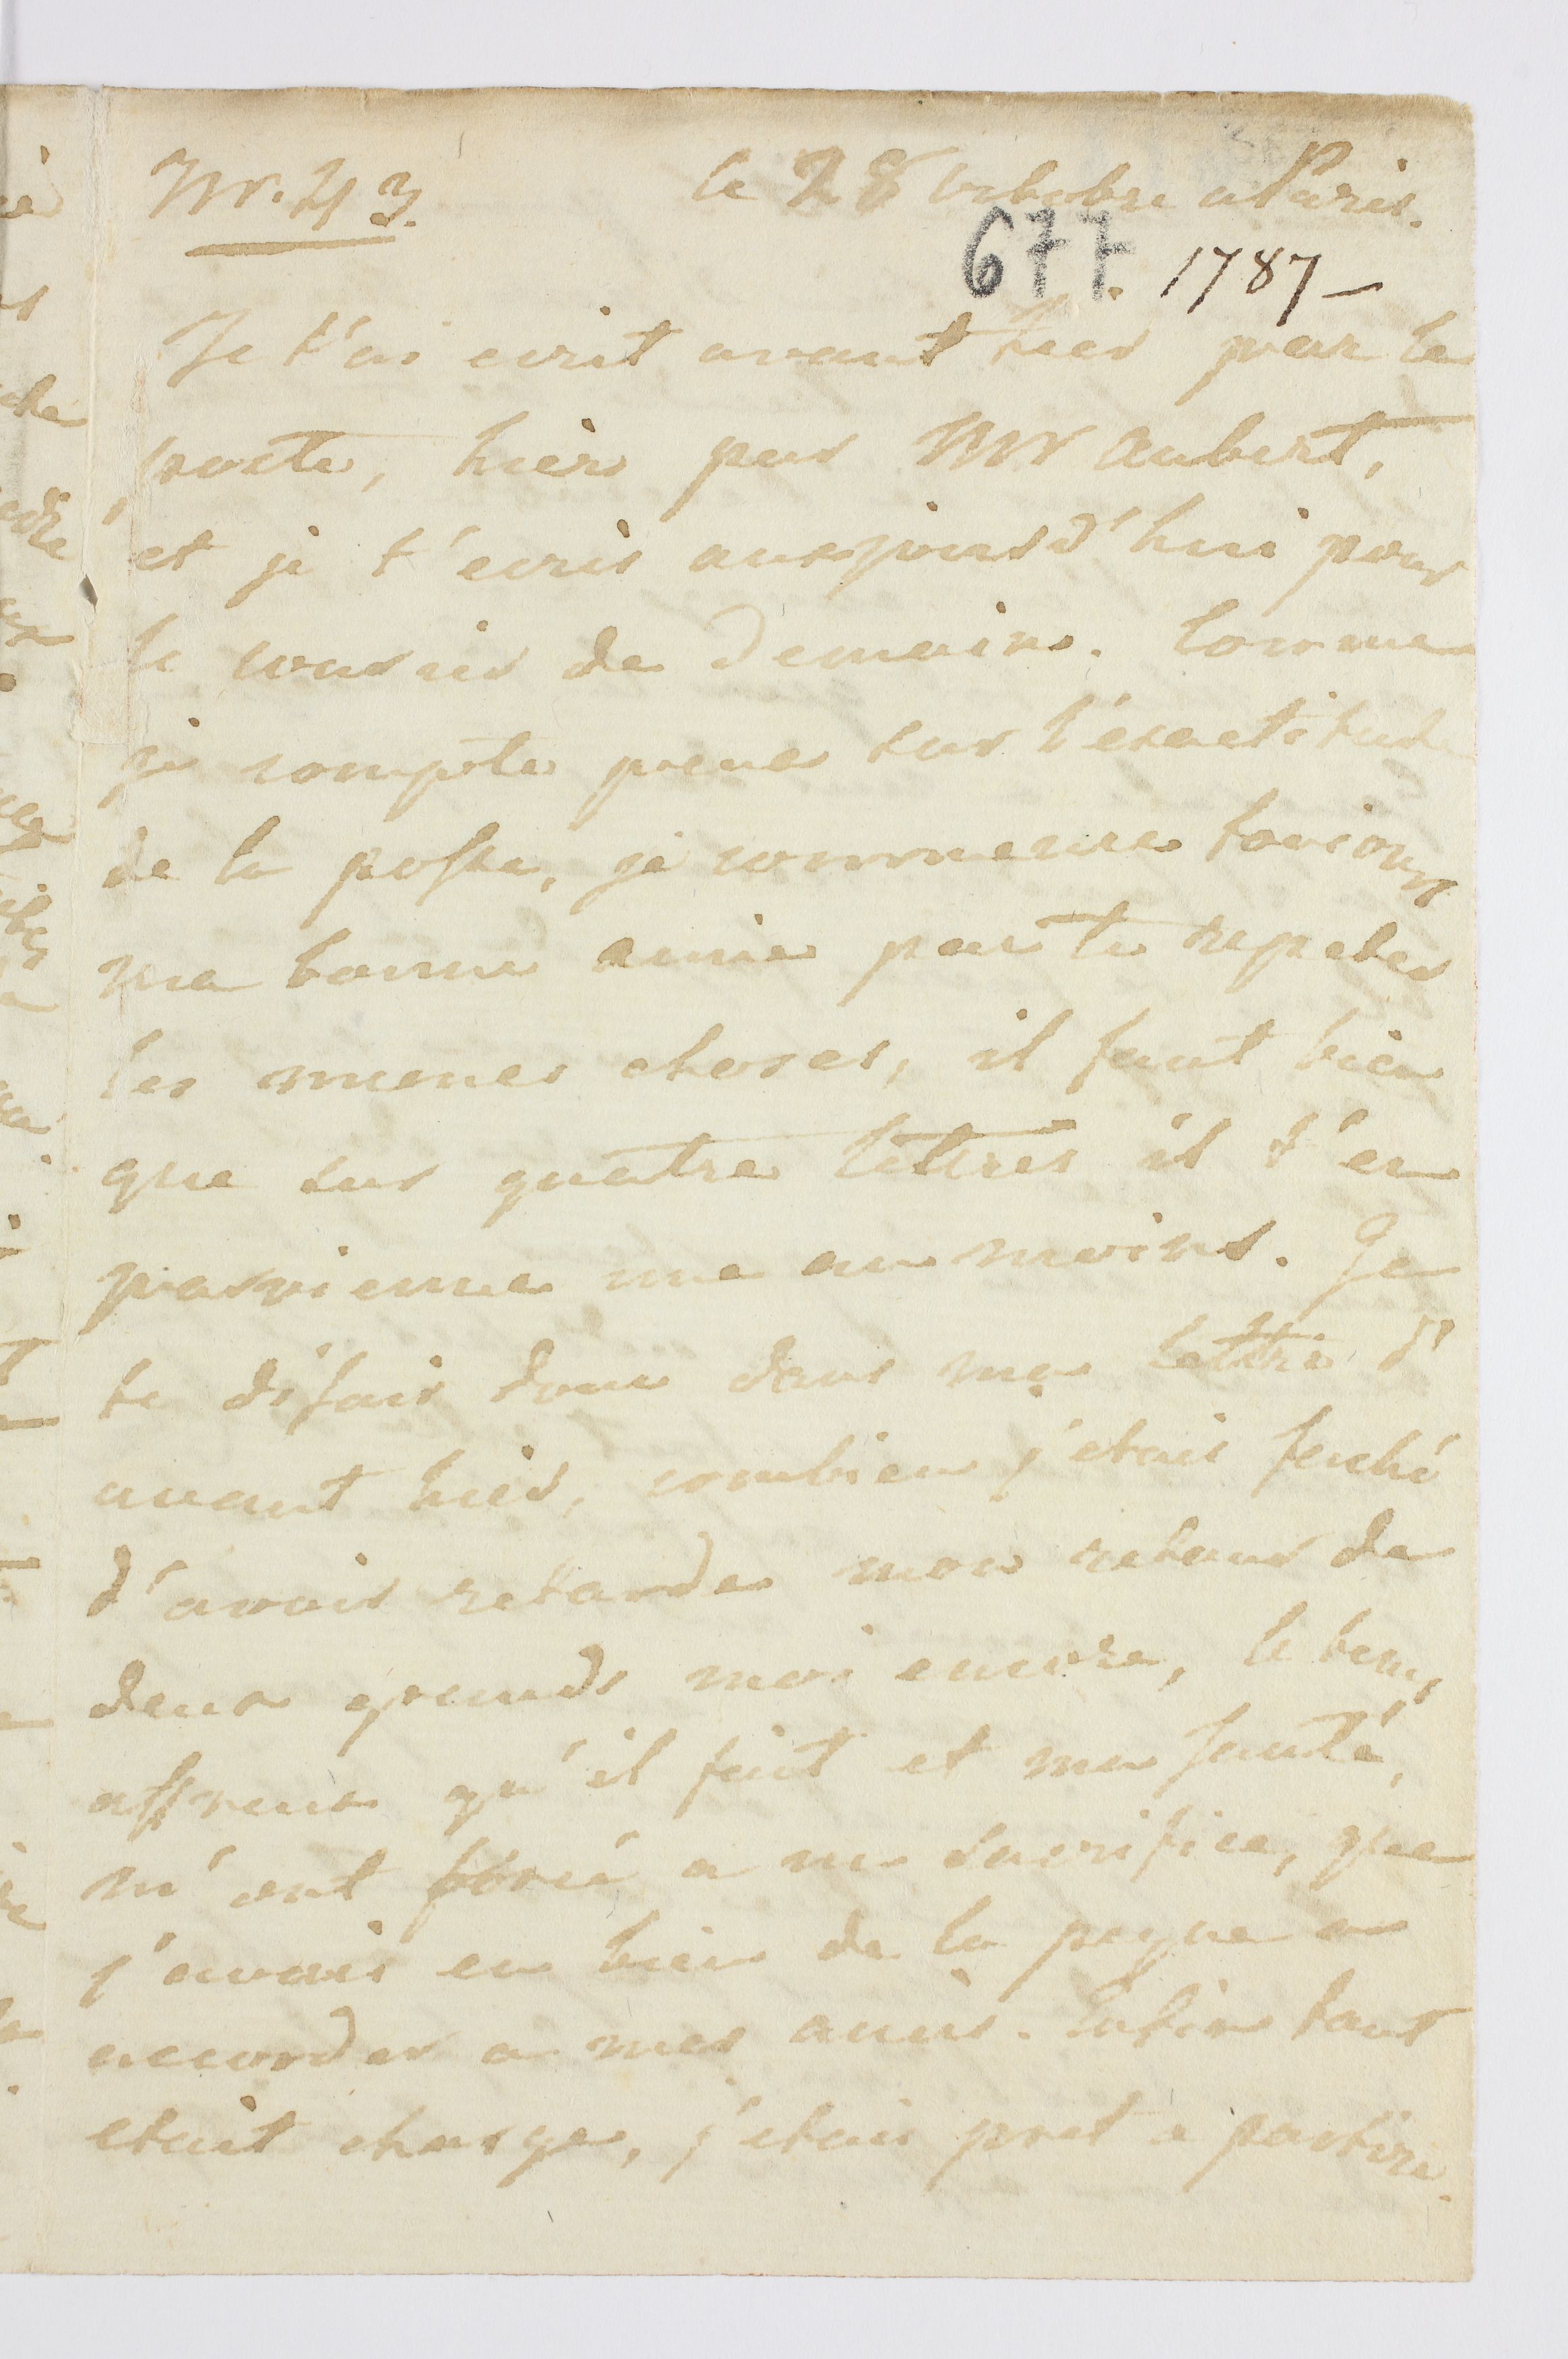 Nr. 43. le 28 octobre a Paris.
677. 1787 —
Je t'ai ecrit avant hier par la
poste, hier par Mr Aubert,
et je t'ecris aujourd'hui pour
le courier de demain. Comme
je compte peu sur l'exactitude
de la poste, je commence toujours
ma bonne amie par te repeter
les memes choses, il faut bien
que sur quatre lettres il t'en
parvienne une au moins. Je
te disais donc dans ma lettre d'
avant hier, combien j'etais faché
d'avoir retarde mon retour de
deux grands moi encore, le tems
affreux qu'il fait et ma santé,
m'ont forcé a un sacrifice, que
j'avais eu bien de la peyne a
accorder a mes amis. Enfin tout
etait charge, j'etais pret a partir.